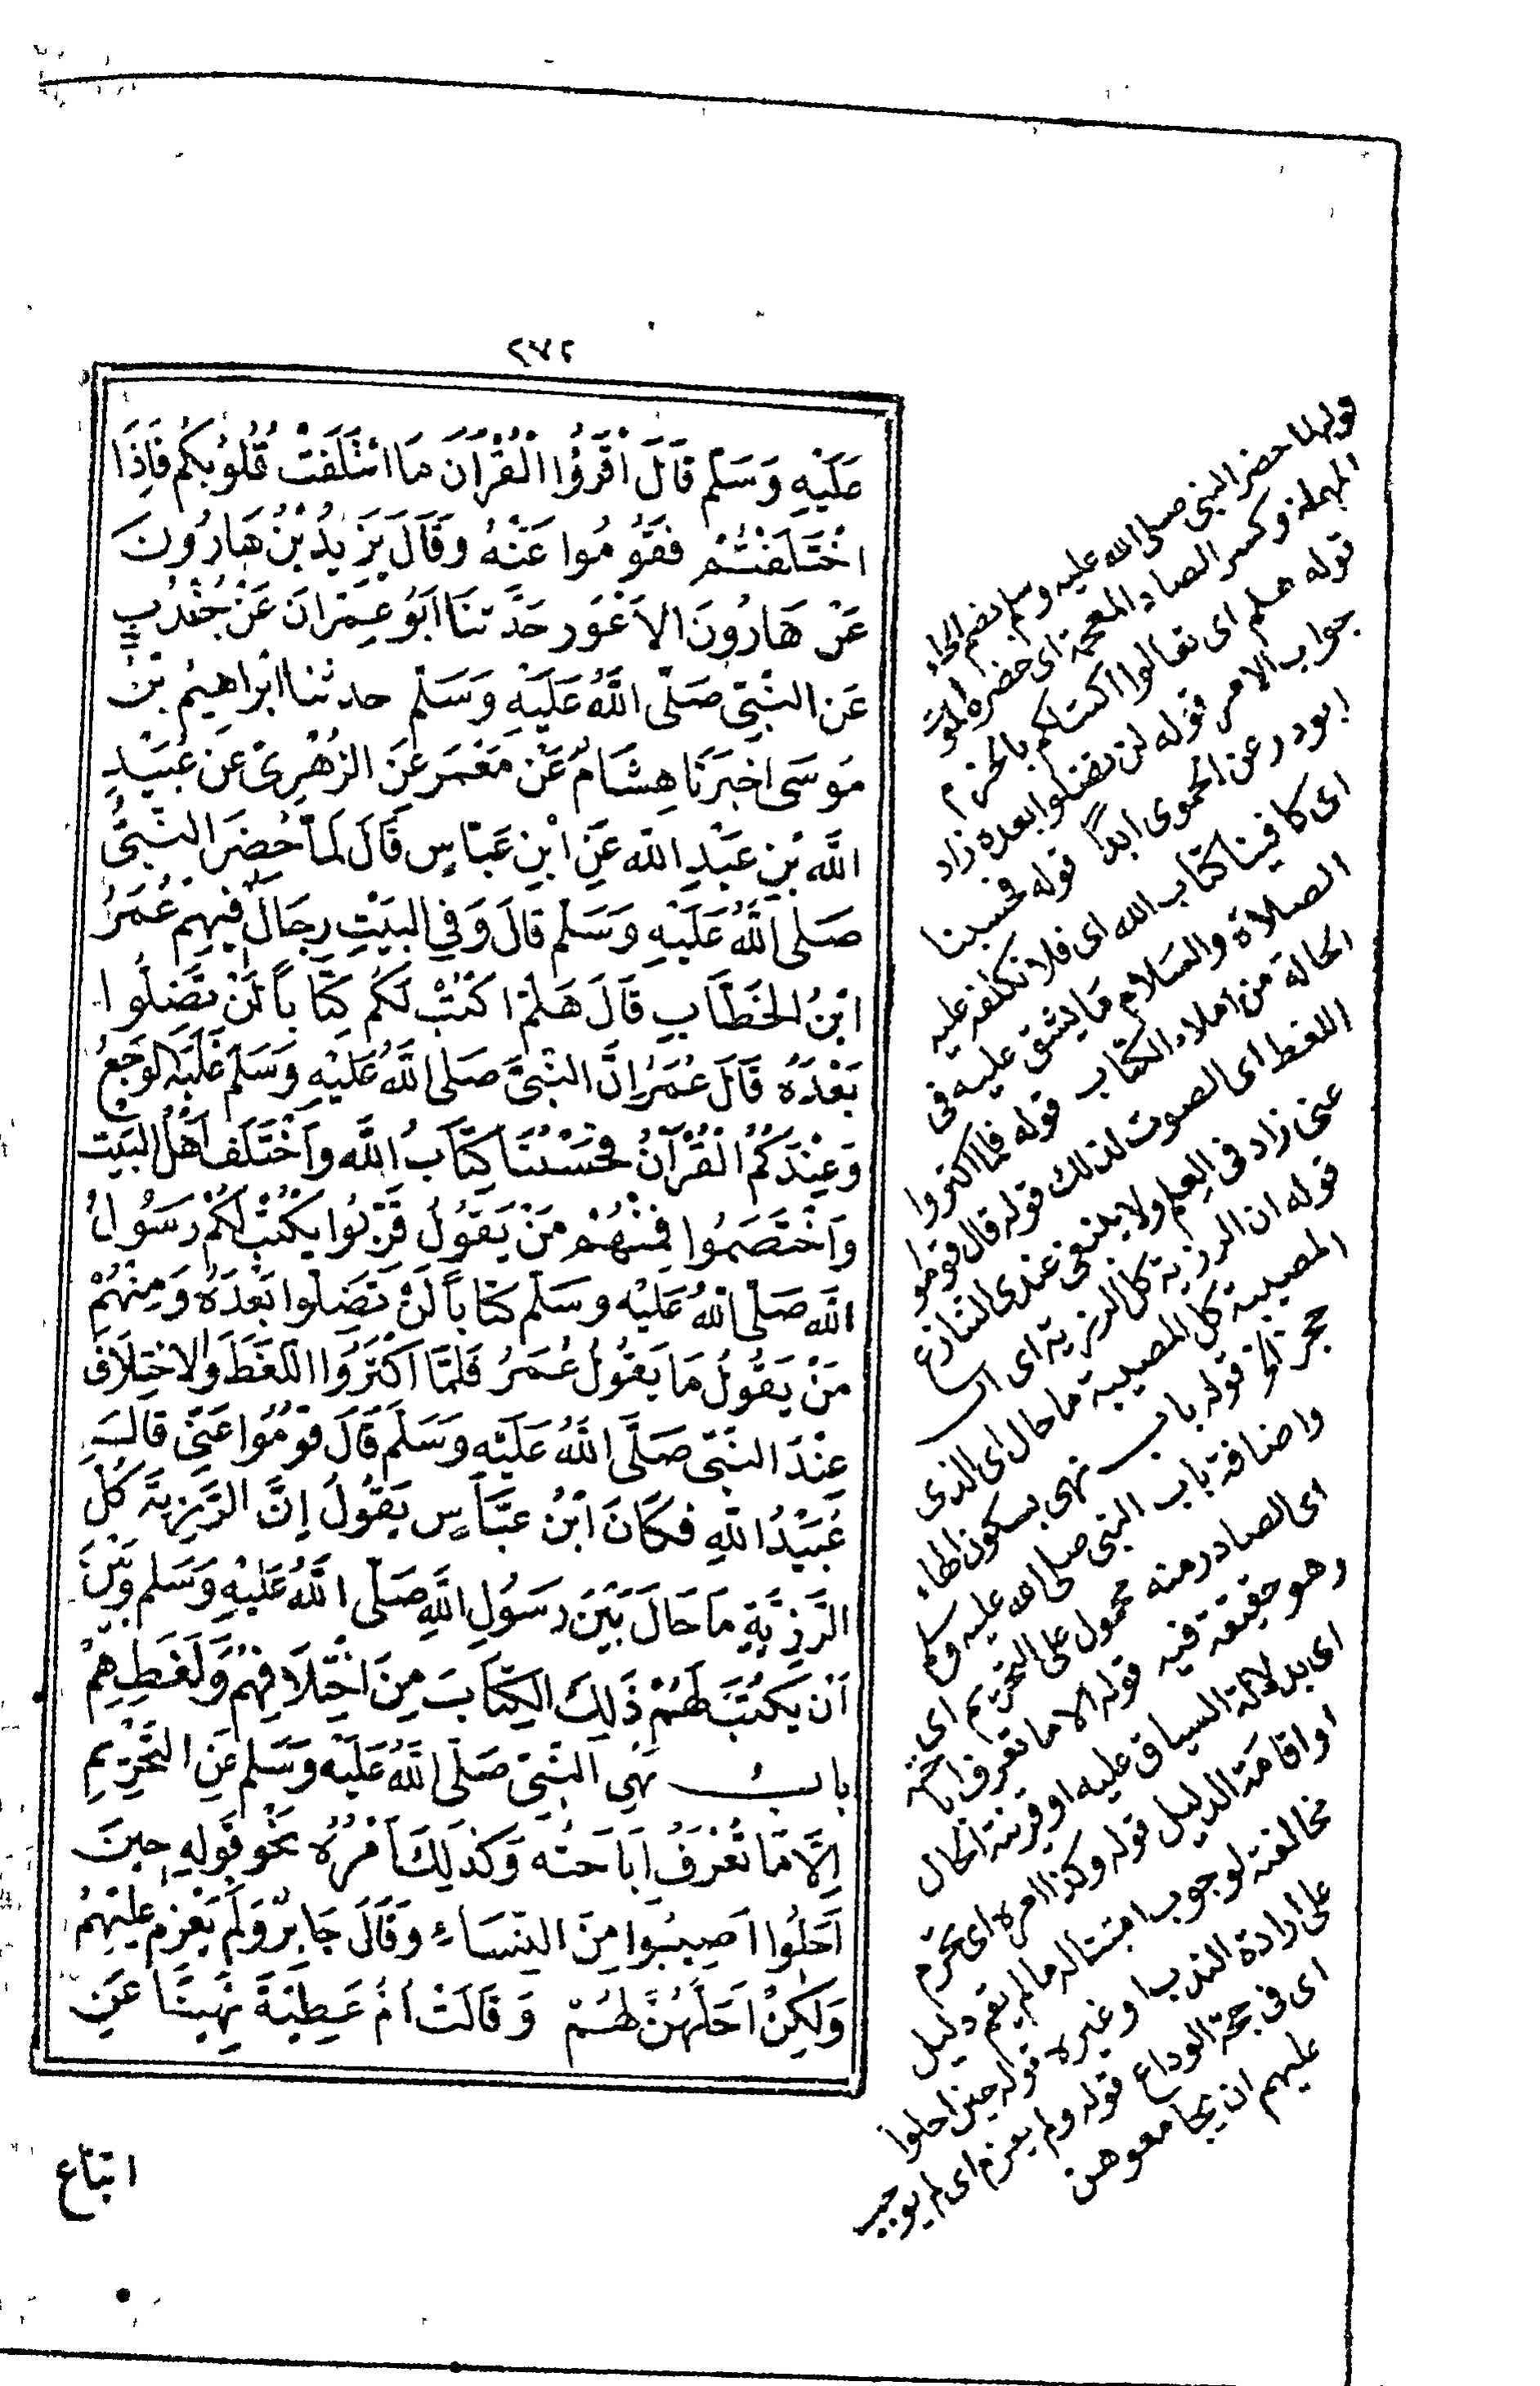 ٢٧٢
عَلَيْهِ وَسَلَّمَ قَالَ اقْرَؤُا الْقُرْآنَ مَا ائْتَلَفَتْ قُلُوبُكُمْ فَإِذَا
اخْتَلَفْتُمْ فَقُومُوا عَنْهُ وَقَالَ يَزِيدُ بْنُ هَارُونَ
عَنْ هَارُونَ الاَعْوَرِ حَدَّثَنَا اَبُو عِمْرَانَ عَنْ جُنْدُبٍ
عَنِ النَّبِىِّ صَلَّى اللَّهُ عَلَيْهِ وَسَلَّمَ حدثنا اِبْرَاهِيمُ بْنُ
مُوسَى اَخْبَرَنَا هِشَامٌ عَنْ مَعْمَرٍ عَنِ الزُّهْرِىِّ عَنْ عُبَيْدِ
اللَّهِ بْنِ عَبْدِ اللَّهِ عَنِ ابْنِ عَبَّاسٍ قَالَ لَمَّا حُضِرَ النَّبِىُّ
صَلَّى اللَّهُ عَلَيْهِ وَسَلَّمَ قَالَ وَفِى البَيْتِ رِجَالٌ فِيهِمْ عُمَرُ
ابْنُ الخَطَّابِ قَالَ هَلُمَّ اَكْتُبْ لَكُمْ كِتَاباً لَنْ تَضِلُّوا
بَعْدَهُ قَالَ عُمَرُ اِنَّ النَّبِىَّ صَلَّى اللَّهُ عَلَيْهِ وَسَلَّمَ غَلَبَهُ الوَجَعُ
وَعِنْدَكُمُ الْقُرْآنُ فَحَسْبُنَا كِتَابُ اللَّهِ وَاخْتَلَفَ اَهْلُ البَيْتِ
وَاخْتَصَمُوا فَمِنْهُمْ مَنْ يَقُولُ قَرِّبُوا يَكْتُبْ لَكُمْ رَسُولُ
اللَّهِ صَلَّى اللَّهُ عَلَيْهِ وَسَلَّمَ كِتَاباً لَنْ تَضِلُّوا بَعْدَهُ وَمِنْهُمْ
مَنْ يَقُولُ مَا يَقُولُ عُمَرُ فَلَمَّا اَكْثَرُوا اللَّغَطَ وَالاخْتِلاَفَ
عِنْدَ النَّبِىِّ صَلَّى اللَّهُ عَلَيْهِ وَسَلَّمَ قَالَ قُومُوا عَنِّى قَالَ
عُبَيْدُ اللَّهِ فَكَانَ ابْنُ عَبَّاسٍ يَقُولُ اِنَّ الرَّزِيَّةَ كُلَّ
الرَّزِيَّةِ مَا حَالَ بَيْنَ رَسُولِ اللَّهِ صَلَّى اللَّهُ عَلَيْهِ وَسَلَّمَ وَبَيْنَ
اَنْ يَكْتُبَ لَهُمْ ذَلِكَ الكِتَابَ مِنَ اخْتِلاَفِهِمْ وَلَغَطِهِمْ
بابُ نَهْىِ النَّبِىِّ صَلَّى اللَّهُ عَلَيْهِ وَسَلَّمَ عَنِ التَّحْرِيْمِ
اِلَّا مَا تُعْرَفُ اِبَاحَتُه وَكَذَلِكَ اَمْرُهُ نَحْوَ قَولِهِ حِينَ
اَحَلُّوا اَصِيبُوا مِنَ النِّسَاءِ وَقَالَ جَابِرٌ وَلَمْ يَعْزِمْ عَلَيْهِمْ
وَلَكِنْ اَحَلَّهُنَّ لَهُمْ وَقَالَتْ اُمُّ عَطِيَّةَ نُهِيْنَا عَنِ
اتباع
قوله لما حضر النبى صلى الله عليه وسلم بضم الحاء
المهملة وكسر الضاد المعجمة اى حضره الموت
قوله هلم اى تعالوا اكتب لكم بالجزم
جواب الامر قوله لن تضلوا بعده زاد
ابو ذر عن الحموى ابداً قوله فحسبنا
اى كافينا كتاب الله اى فلا نكلفه عليه
الصلاة والسلام ما يشق عليه فى
الحالة من املاء الكتاب قوله فلما اكثروا
اللغط اى الصوت لذلك قوله قال قوموا
عنى زاد فى العلم ولا ينبغى عندى التنازع
قوله ان الرزية كل الرزية اى ان
المصيبة كل المصيبة ما حال اى الذى
حجز قوله باب نهى بسكون الهاء
واضافة باب النبى صلى الله عليه وسلم
اى الصادر منه محمول على التحريم اى
وهو حقيقة فيه قوله الا ما تعرف اباحته
اى بدلالة السياق عليه او قرينة الحال
او اقامة الدليل قوله وكذا امره اى تحرم
مخالفته لوجوب امتثاله ما لم يقم دليل
على ارادة الندب او غيره قوله حين احلوا
اى فى حجة الوداع قوله ولم يعزم اى لم يوجب
عليهم ان يجامعوهن